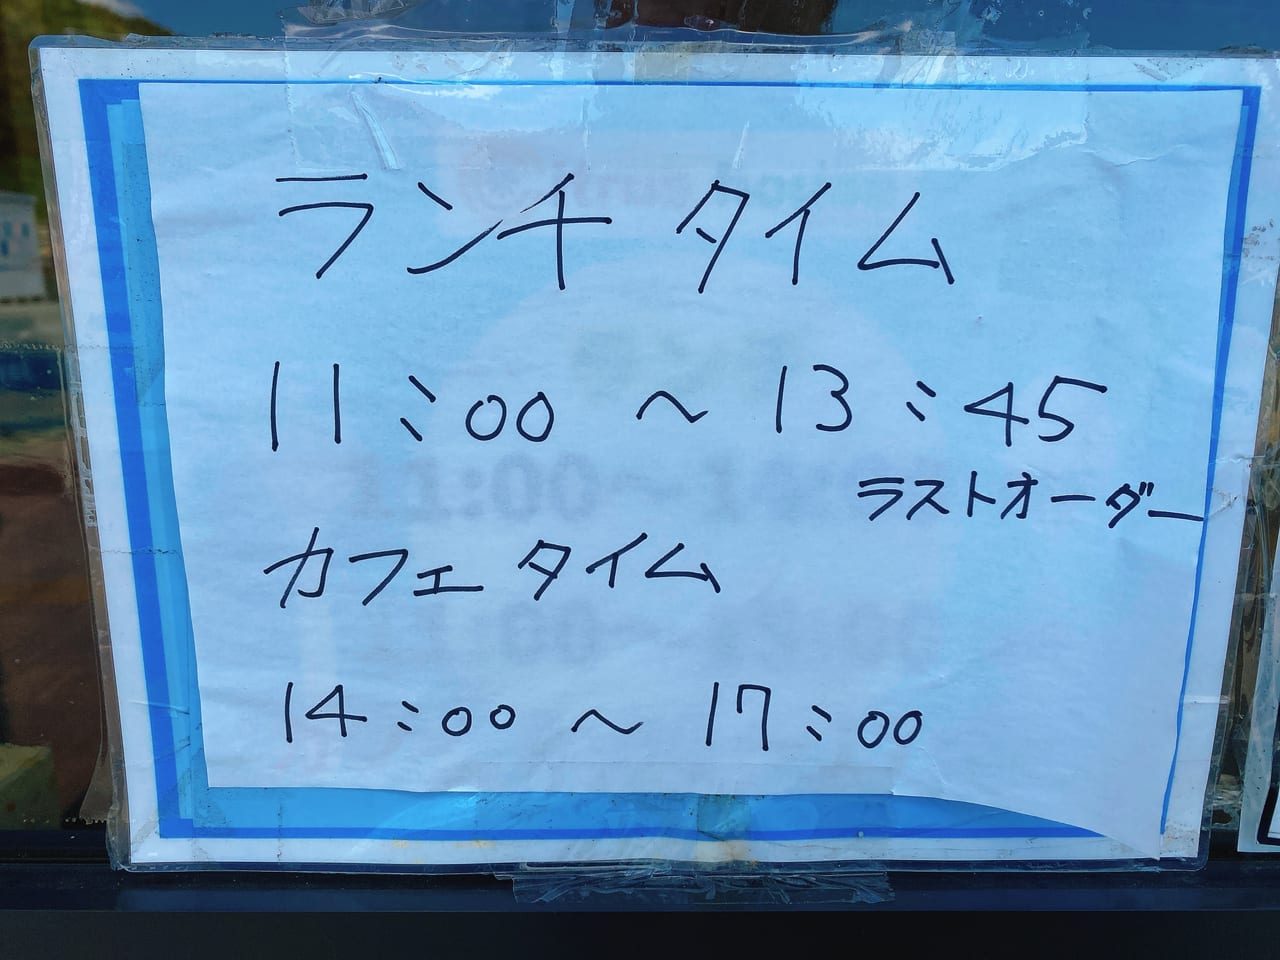 ランチタイム
11:00 ～ 13:45
ラストオーダー
カフェタイム
14:00 ～ 17:00